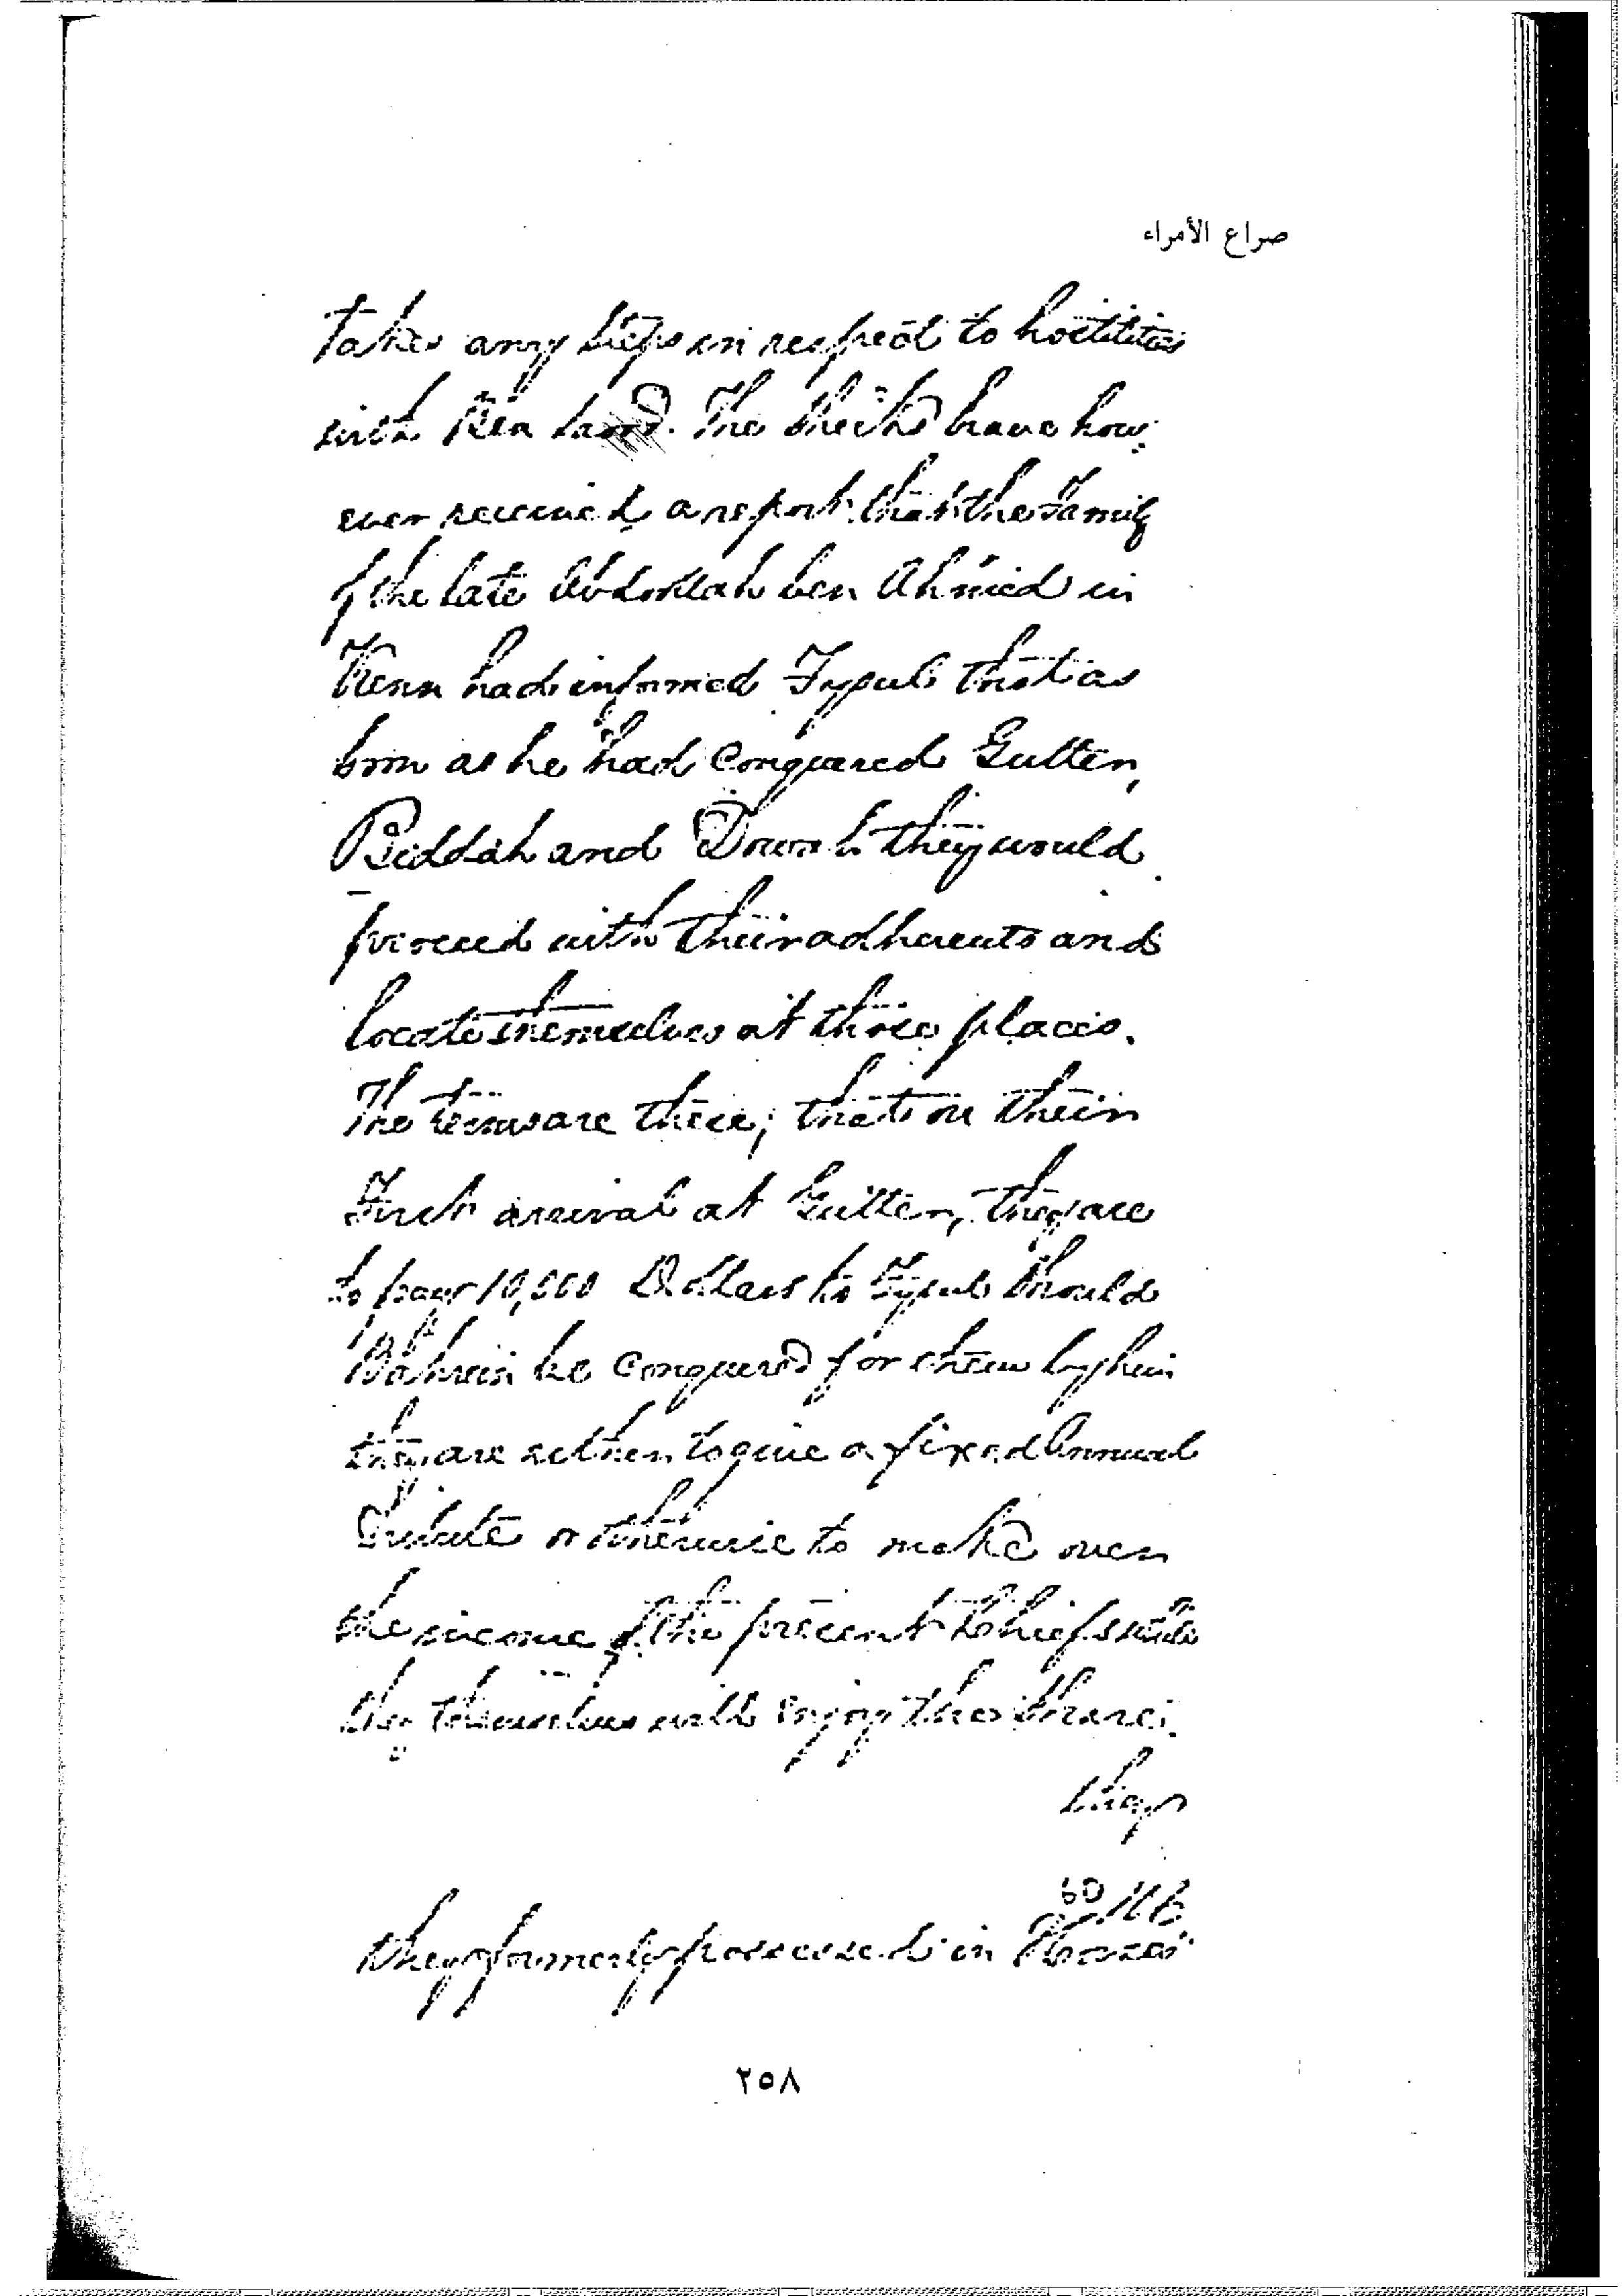 صراع الأمراء
takes any steps in respect to hostilities
with land. The Sheiks have how-
ever received a report that the Family
of the late Abdollah ben Ahmed in
Kenn had informed Fysul that as
soon as he had conquered Gutter,
Biddah and they would
proceed with their adherents and
locate themselves at those places.
The terms are these; that on their
First arrival at Gutter, they are
to pay 10,000 Dollars to Fysul should
Bahrein be conquered for them by him
they are either to give a fixed Annual
Tribute or otherwise to make over
the income of the present Chiefs while
they themselves will enjoy the share
they
60
they formerly possessed in
٢٥٨